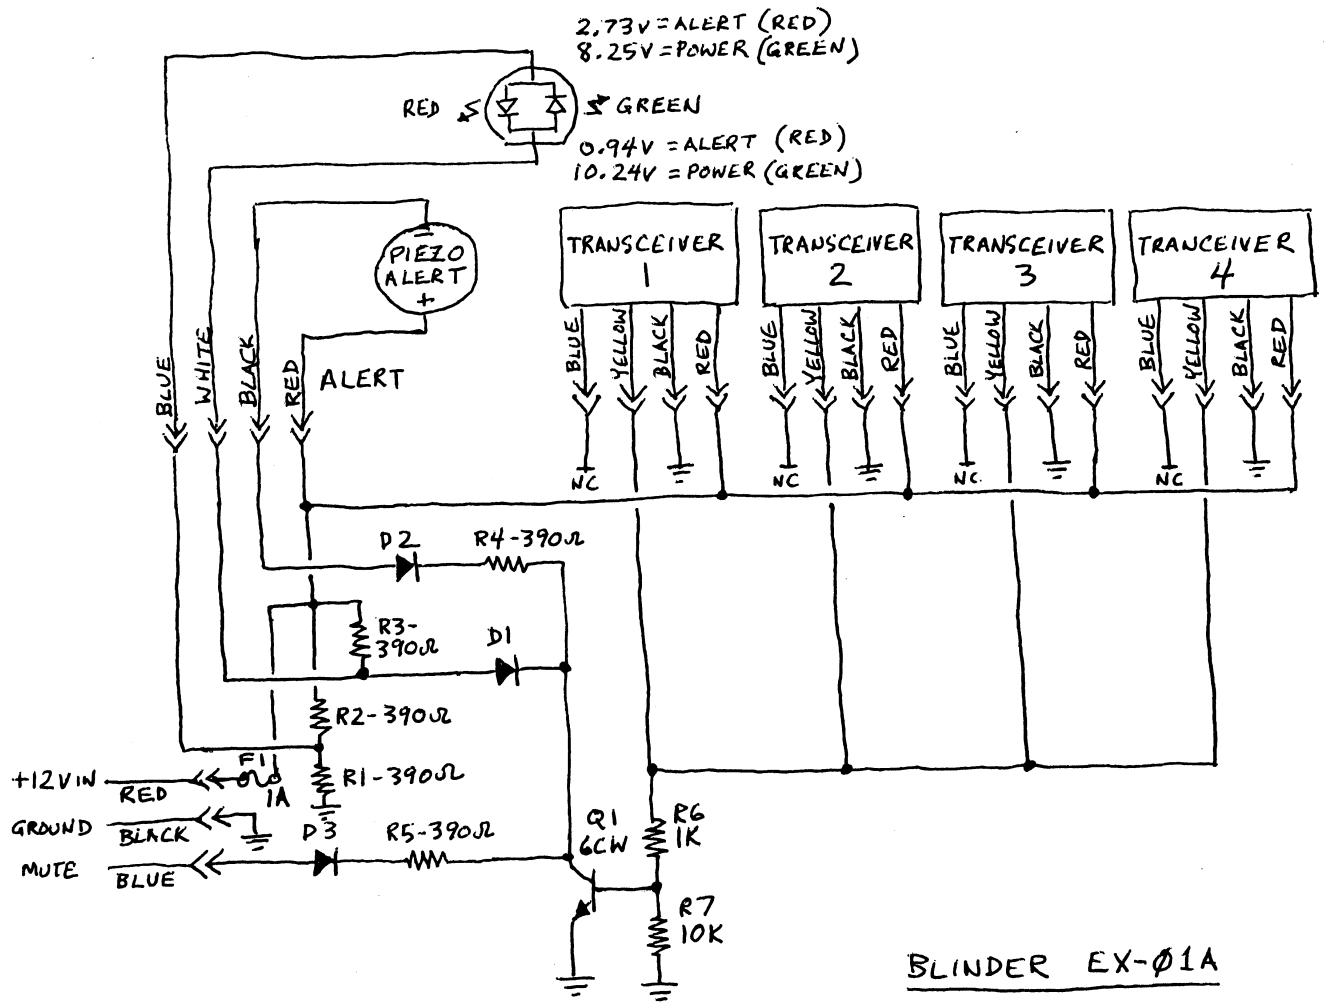 2.73V=ALERT (RED)
8.25V=POWER (GREEN)
RED
GREEN
0.94V=ALERT (RED)
10.24V=POWER (GREEN)
PIEZO
ALERT
+
TRANSCEIVER
1
TRANSCEIVER
2
TRANSCEIVER
3
TRANCEIVER
4
BLUE
YELLOW
BLACK
RED
BLUE
YELLOW
BLACK
RED
BLUE
YELLOW
BLACK
RED
BLUE
YELLOW
BLACK
RED
BLUE
WHITE
BLACK
RED
ALERT
NC
NC
NC
NC
D2
R4-390Ω
R3-
390Ω
D1
R2-390Ω
F1
1A
R1-390Ω
+12VIN
RED
GROUND
BLACK
MUTE
BLUE
D3
R5-390Ω
Q1
6CW
R6
1K
R7
10K
BLINDER EX-Ø1A